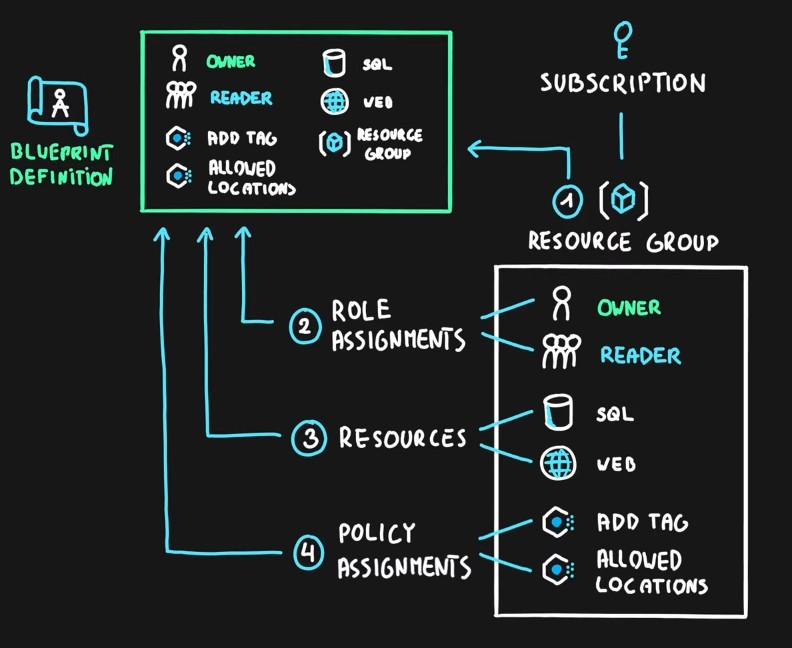 BLUEPRINT
DEFINITION
OWNER
READER
ADD TAG
ALLOWED
LOCATIONS
SQL
WEB
RESOURCE
GROUP
SUBSCRIPTION
1
RESOURCE GROUP
2 ROLE
ASSIGNMENTS
OWNER
READER
3 RESOURCES
SQL
WEB
4 POLICY
ASSIGNMENTS
ADD TAG
ALLOWED
LOCATIONS